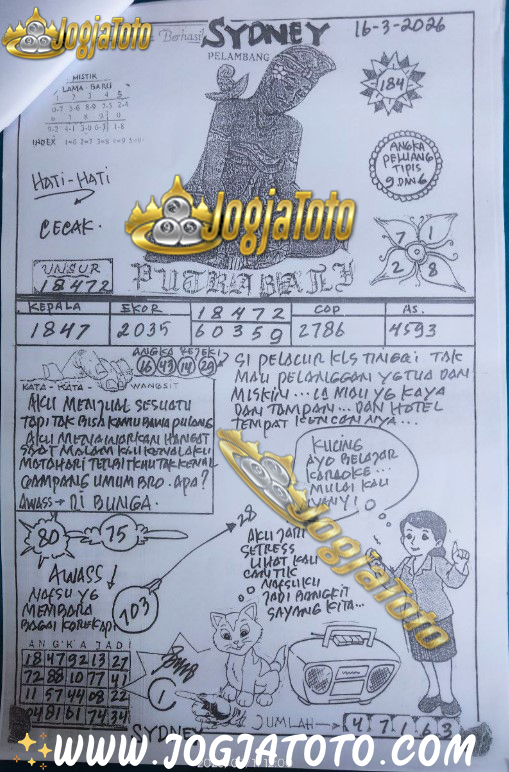 JogjaToto
Berhasil SYDNEY
16-3-2026
PELAMBANG
MISTIK
LAMA BARU
1 2 3 4 5
6 7 8 9 0
INDEX
184
ANGKA
PELUANG
TIPIS
9 DAN 6
HATI-HATI
CECAK.
JogjaToto
7 1
2 8
UNSUR
18472
PUTRA BALI
KEPALA
EKOR
18472
COP
AS.
1847
2035
60359
2786
4593
ANGKA REJEKI
46 43 14 29
KATA-KATA-WANGSIT
AKU MENJUAL SESUATU
TAPI TAK BISA KAMU BAWA PULANG
AKU MENAWARKAN HANGAT
SAAT MALAM KAU KENAL AKU
MATAHARI TERBIT KAU TAK KENAL
GAMPANG UMUM BRO. APA?
AWASS → DI BUNGA.
SI PELACUR KLS TINGGI TAK
MAU PELANGGAN YG TUA DAN
MISKIN... IA MAU YG KAYA
DAN TAMPAN... DAN HOTEL
TEMPAT KENCANNYA...
KUCING
AYO BELAJAR
KARAOKE...
MULAI KAU
NANYI
80
75
28
AWASS!
NAFSU YG
MEMBARA
BAGAI KOREK API
103
AKU JADI
SETRESS
LIHAT KAU
CANTIK
NAFSUKU
JADI BANGKIT
SAYANG KITA...
JogjaToto
ANGKA JADI
18 47 92 13 27
72 88 10 77 41
11 57 44 08 22
04 81 01 74 34
1
SYDNEY
JUMLAH → 4 7 1 6 3
WWW.JOGJATOTO.COM